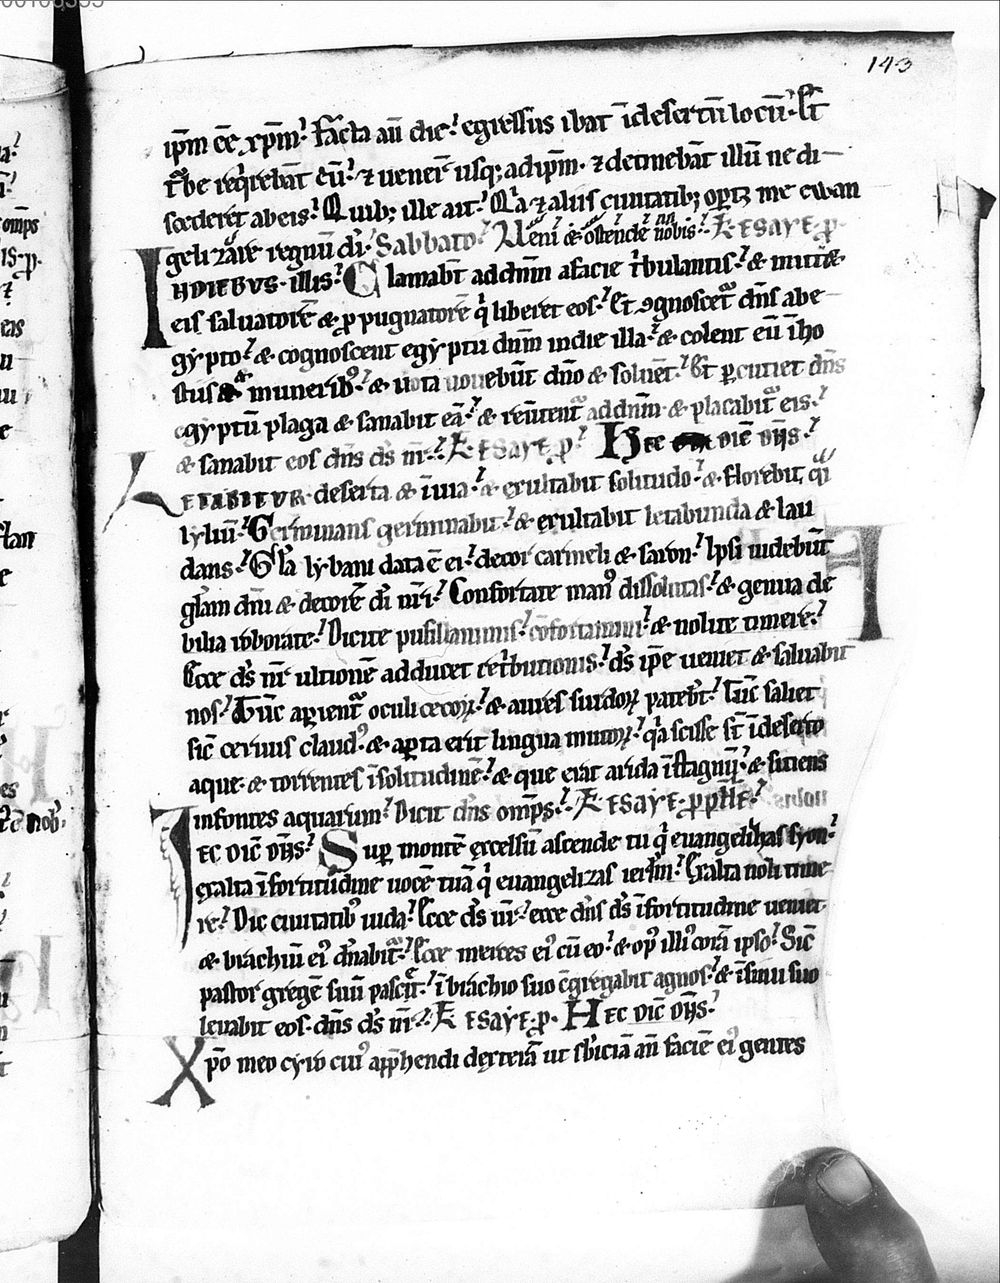 143
ip̄m ēē xp̄m. facta aū die. egressus ibat ī desertū locū. Et
t͛be req͛rebāt eū. ⁊ uener̄ usq; ad ip̄m. ⁊ detinebāt illū ne di
scederet ab eis. Quib; ille ait. Q͛a ⁊ aliis ciuitatib; oport; me euuan
gelizare regnū dī. Sabbato. Ueni & ostende nobis. L ESAYE p̄.
IN DIEBUS illis. Clamabt̄ ad dn̄m a facie t͛bulantis. & mittet
eis saluatorē & propugnatorē q͛ liberet eos. Et ꝯgnoscet͛ dn̄s ab e
gypto. & cognoscent egyptii dn̄m in die illa. & colent eū ī ho
stiis & munerib;. & uota uouebūt dn̄o & soluēt. Et ꝑcutiet dn̄s
egyptū plaga & sanabit eā. & reūtent͛ ad dn̄m & placabit͛ eis.
& sanabit eos dn̄s ds̄ nr̄. L ESAYE p̄. Hec dīc dn̄s.
LETABITUR deserta & īuia. & exultabit solitudo. & florebit q͛i
lyliū. Germinans germinabit. & exultabit letabunda & lau
dans. Gl͛a lybani data ē ei. decor carmeli & saron. Ipsi uidebūt
gl̄am dn̄i & decorē dī nr̄i. Confortate man; dissolutas. & genua de
bilia roborate. Dicite pusillanimis. cōfortamini. & nolite timere.
Ecce ds̄ nr̄ ultionē adducet ret͛butionis. ds̄ ip̄e ueniet & saluabit
nos. Tūc aperient͛ oculi cecoꝝ. & aures surdoꝝ patebt̄. Tūc saliet
sic̄ ceruus claud;. & aꝑta erit lingua mutoꝝ. q͛a scisse st̄ ī deserto
aque. & torrentes ī solitudinē. & que erat arida ī stagnū. & sitiens
in fontes aquarum. Dicit dn̄s omp̄s. L ESAYE pp̄he.
HEC DIC̄ DN̄S. Suꝑ montē excelsū ascende tu q͛ euangelizas syon.
exalta ī fortitudine uocē tuā q͛ euangelizas ierl̄m. Exalta noli time
re. Dic ciuitatib; iuda. Ecce ds̄ ur̄. ecce dn̄s ds̄ ī fortitudine ueniet.
& brachiū ei; dn̄abit͛. Ecce merces ei; cū eo. & op; illi; corā ipso. Sic̄
pastor gregē suū pascet. ī brachio suo cōgregabit agnos. & ī sinu suo
leuabit eos. dn̄s ds̄ nr̄. L ESAYE p̄. HEC DIC̄ DN̄S.
Xp̄o meo cyro cui; app̄hendi dexterā ut sb̄iciā an̄ faciē ei; gentes